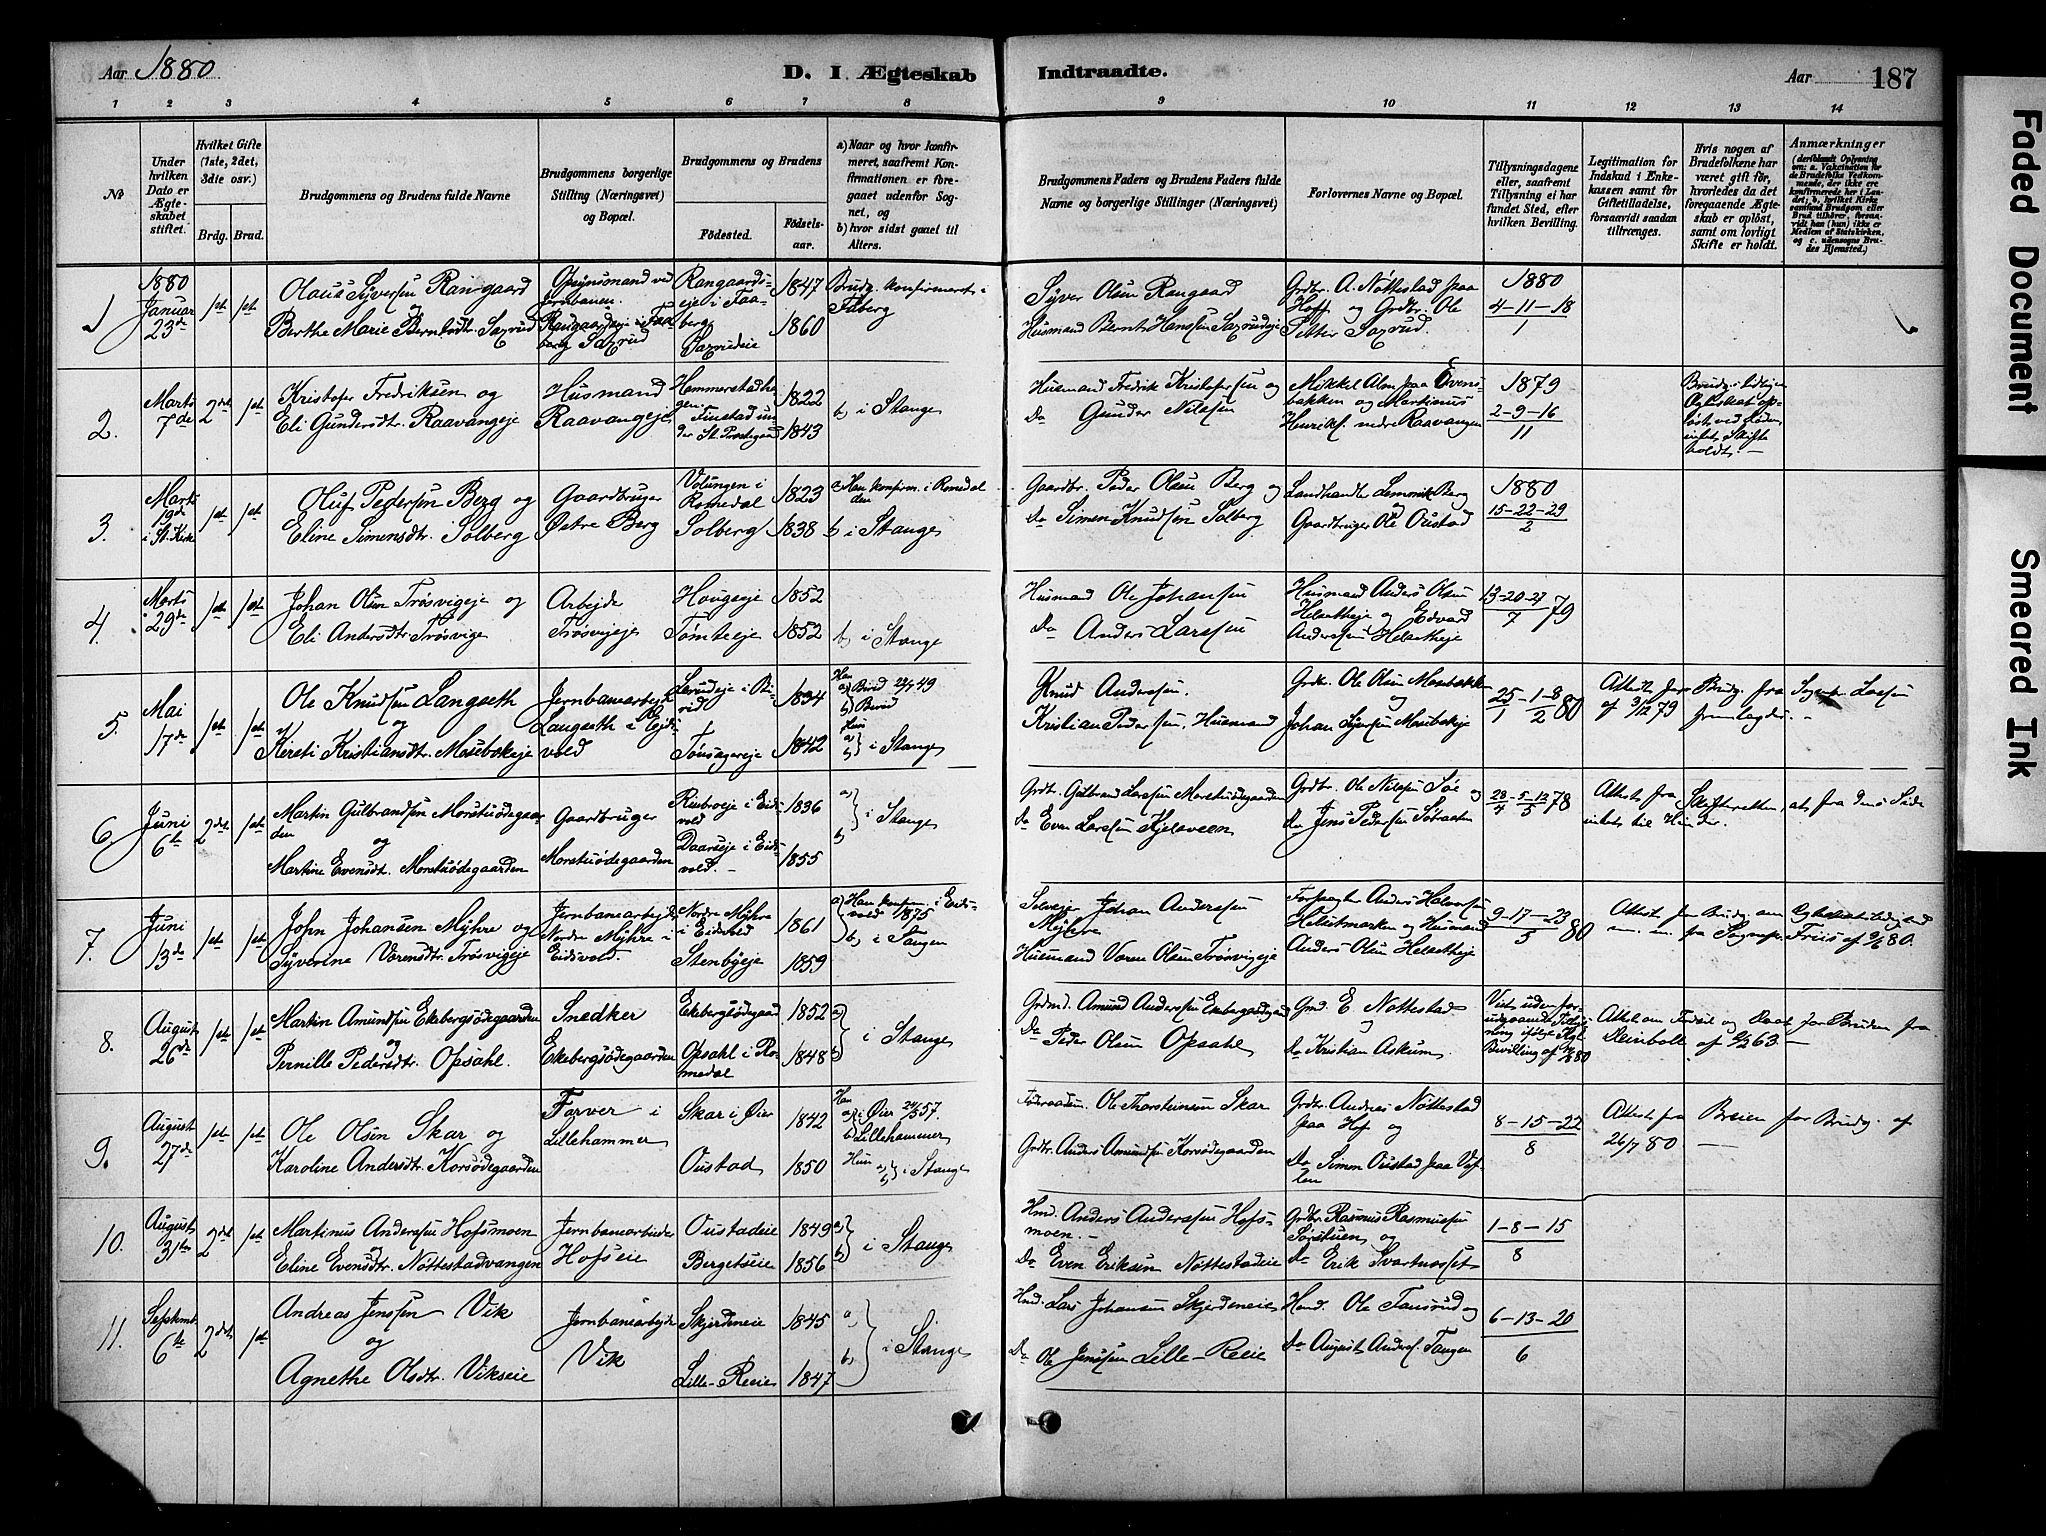 Aar 1880
D. I Ægteskab
Indtraadte.
Aar 187
1 2 3 4 5 6 7 8 9 10 11 12 13 14
Faded Document
Smeared Ink
No
Under hvilken Dato er Ægteskabet stiftet.
Hvilket Gifte (1ste, 2det, 3die osv.)
Brdg. Brud.
Brudgommens og Brudens fulde Navne
Brudgommens borgerlige Stilling (Næringsvei) og Bopæl.
Brudgommens og Brudens
Fødested.
Fødselsaar.
a) Naar og hvor konfirmeret, saafremt Konfirmationen er foregaaet udenfor Sognet, og
b) hvor sidst gaaet til Alters.
Brudgommens Faders og Brudens Faders fulde Navne og borgerlige Stillinger (Næringsvei)
Forlovernes Navne og Bopæl.
Tillysningsdagene eller, saafremt Tillysning ei har fundet Sted, efter hvilken Bevilling.
Legitimation for Indskud i Enkekassen samt for Giftetilladelse, forsaavidt saadan tiltrænges.
Hvis nogen af Brudefolkene har været gift før, hvorledes da det foregaaende Ægteskab er opløst, samt om lovligt Skifte er holdt.
Anmærkninger
1 1880 Januar 23de 1ste 1ste
Olaus Syversen Rangaard
Berthe Marie Berntsdtr. Saxrud
Opsynsmand ved Jernbanen.
Rangaardseje i Faaberg Saxrud
Rangaardseje i Faaberg 1847
Saxrudeie 1860
Brudg. konfirmeret i Faaberg
Syver Olsen Rangaard
Husmand Bernt Hansen Saxrudeje
Grdbr. A. Nøttestad paa Hoff og Grdbr. Ole Sætter Saxrud.
1880
4-11-18
1
2. Marts 7de 2det 1ste
Kristofer Fredriksen og
Eli Gundersdtr. Raavangeje
Husmand
Raavangeje
1822
1843
b) i Stange
Husmand Fredrik Kristofersen og
Do Gunder Nilsen
Mikkel Olsen paa Evensbakken og Martinus Henriks. nedre Raavangen
1879
2-9-16
11
3. Marts 19de i St. Kirke 1ste 1ste
Oluf Pedersen Berg og
Eline Simensdtr. Solberg
Gaardbruger
Østre Berg
Volungen i Romedal 1823
Solberg 1838
Han konfirm. i Romedal
b) i Stange
Gaardbr. Peder Olsen Berg og
Do Simen Knudsen Solberg
Landhandler Berg
Gaardbruger Ole Oustad
1880
15-22-29
2
4. Marts 29de 1ste 1ste
Johan Olsen Trøsvigeje og
Eli Andersdtr. Trøsvige
Arbejde
Trøsvigeje
Hougseje 1852
Tømteeje 1852
b) i Stange
Husmand Ole Johansen
Do Anders Larsen
Husmand Anders Olsen Helsetheje og Edvard Andersen Helsetheje
13-20-27 79
7
5. Mai 17de 1ste 1ste
Ole Knudsen Langseth
og
Kersti Kristiansdtr. Mosebækeje
Jernbanearbejder
Langseth i Eidsvold
1834
Tønsagereje 1842
Han
a) Birid 49
b) Birid
Hun
a) b) i Stange
Knud Andersen.
Kristian Pedersen. Husmand
Grdbr. Ole Olsen Mosebækken
og
Johan Mosebækeje
25-1-8 80
1 2
Attest for Brudg. fra Sogneprest Larsen
af 3/12 79 fremlagdes.
6. Juni 6te 2det 1ste
Martin Gulbrandsen Morstuødegaarden
og
Martine Evensdt. Morstuødegaarden
Gaardbruger
Morstuødegaarden
eje i Eidsvold 1836
eje i Eidsvold. 1855
a) b) i Stange
Grdbr. Gulbrand Larsen Morstuødegaarden
Do Even Larsen Kjelsveen
Grdbr. Ole Nilsen Søe og
Do Jens Pedersen
28-5-12 78
4 5
Attest fra Skifteretten at fra dens Side
intet til Hinder.
7. Juni 13de 1ste 1ste
John Johansen Myhre og
Syverine Vorensdtr. Trøsvigeje
Jernbanearbejder
Nordre Myhre i Eidsvold.
Nordre Myhre i Eidsvold 1861
Stenbyeje 1859
a) Han konfirm. i Eidsvold 1875
b) i Tangen
Selveier Johan Andersen Myhre
Husmand Voren Olsen Trøsvigeje
Forpagter Anders Halvorsen Helsetmarken og Husmand Anders Olsen Helsetheje
9-17-23 80
5
Attest for Brudg. om Egteskabsledighed
m. m. fra Sognepr. Freis af 9/6 80.
8. August 26de 1ste 1ste
Martin Amundsen Ekebergsødegaarden
og
Pernille Pedersdtr. Opsahl.
Snedker
Ekebergsødegaarden
Ekebergsødegaard 1852
Opsahl i Romedal 1848
a) b) i Stange
Grdmd. Amund Andersen Ekebergødegaard
Do Peder Olsen Opsahl
Gmd. E Nøttestad
og
Do Kristian Askum.
Viet uden forudgaaende Tillysning ifølge Kgl. Bevilling af 80
Attest om Fødsel og Daab for Bruden fra
Deinboll af 63
9. August 27de 1ste 1ste
Ole Olsen Skar og
Karoline Andersdtr. Korsødegaarden
Farver i
Lillehammer
Skar i Øier 1842
Oustad 1850
Han
a) i Øier 57.
b) Lillehammer
Hun a) b) i Stange
Ole Thorsteinsen Skar
Grdbr. Anders Amundsen Korsødegaarden
Grdbr. Andreas Nøttestad paa Hof og
Do Simen Oustad paa
8-15-22
8
Attest fra Breien for Brudg. af
26/7 80.
10. August 31te 2det 1ste
Martinus Andersen Hofsmoen
Eline Evensdtr. Nøttestadvangen
Jernbanearbeider
Hofseie
Oustadeie 1849
Bergetseie 1856
a) b) i Stange
Hmd. Anders Andersen Hofsmoen.
Do Even Eriksen Nøttestadeie
Grdbr. Rasmus Rasmussen Sørstuen og
Do Erik Svartnæsset
1-8-15
8
11. Septemb. 6te 2det 1ste
Andreas Jenssen Vik
og
Agnethe Olsdtr. Vikseie
Jernbanearbejder
Vik
Skjerdeneie 1845
Lille-Reeie 1847
a) b) i Stange
Hmd. Lars Johansen Skjerdeneie
Do Ole Jenssen Lille-Reeie
Hmd. Ole Fausrud og
Do August Anders. Tangen
6-13-20
6